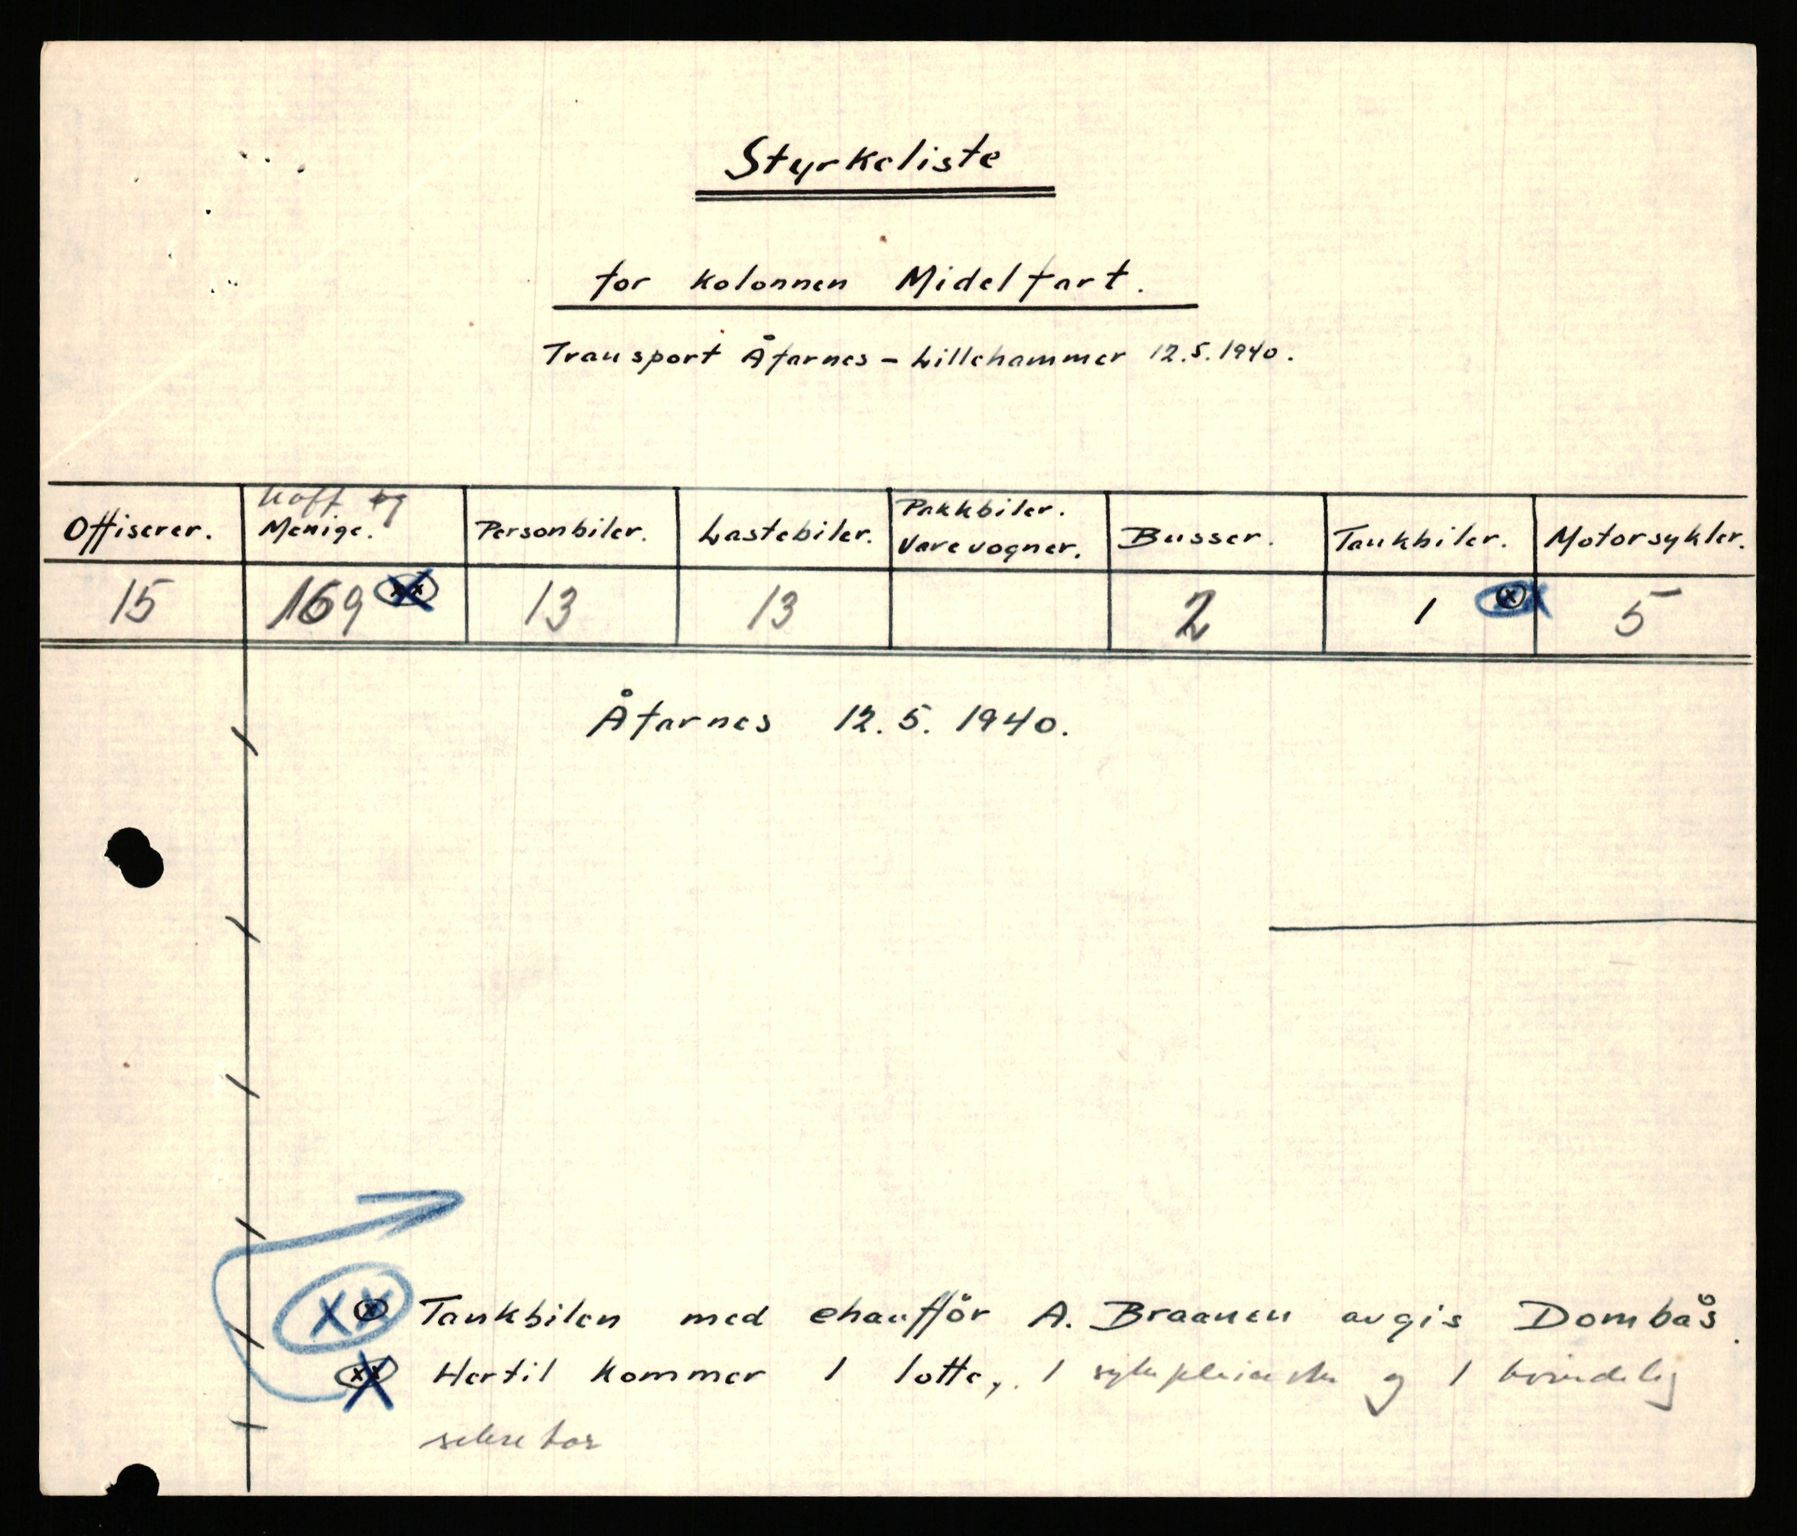 Styrkeliste
for kolonnen Midelfart.
Transport Åfarnes – Lillehammer 12.5.1940.
Offiserer. Uoff og Menige. Personbiler. Lastebiler. Pakkbiler. Varevogner. Busser. Tankbiler. Motorsykler.
15 169 xx 13 13 2 1 x 5
Åfarnes 12.5.1940.
xx x Tankbilen med chauffør A. Braanen avgis Dombås.
xx Hertil kommer 1 lotte, 1 sykepleierske og 1 kvindelig
sekretær